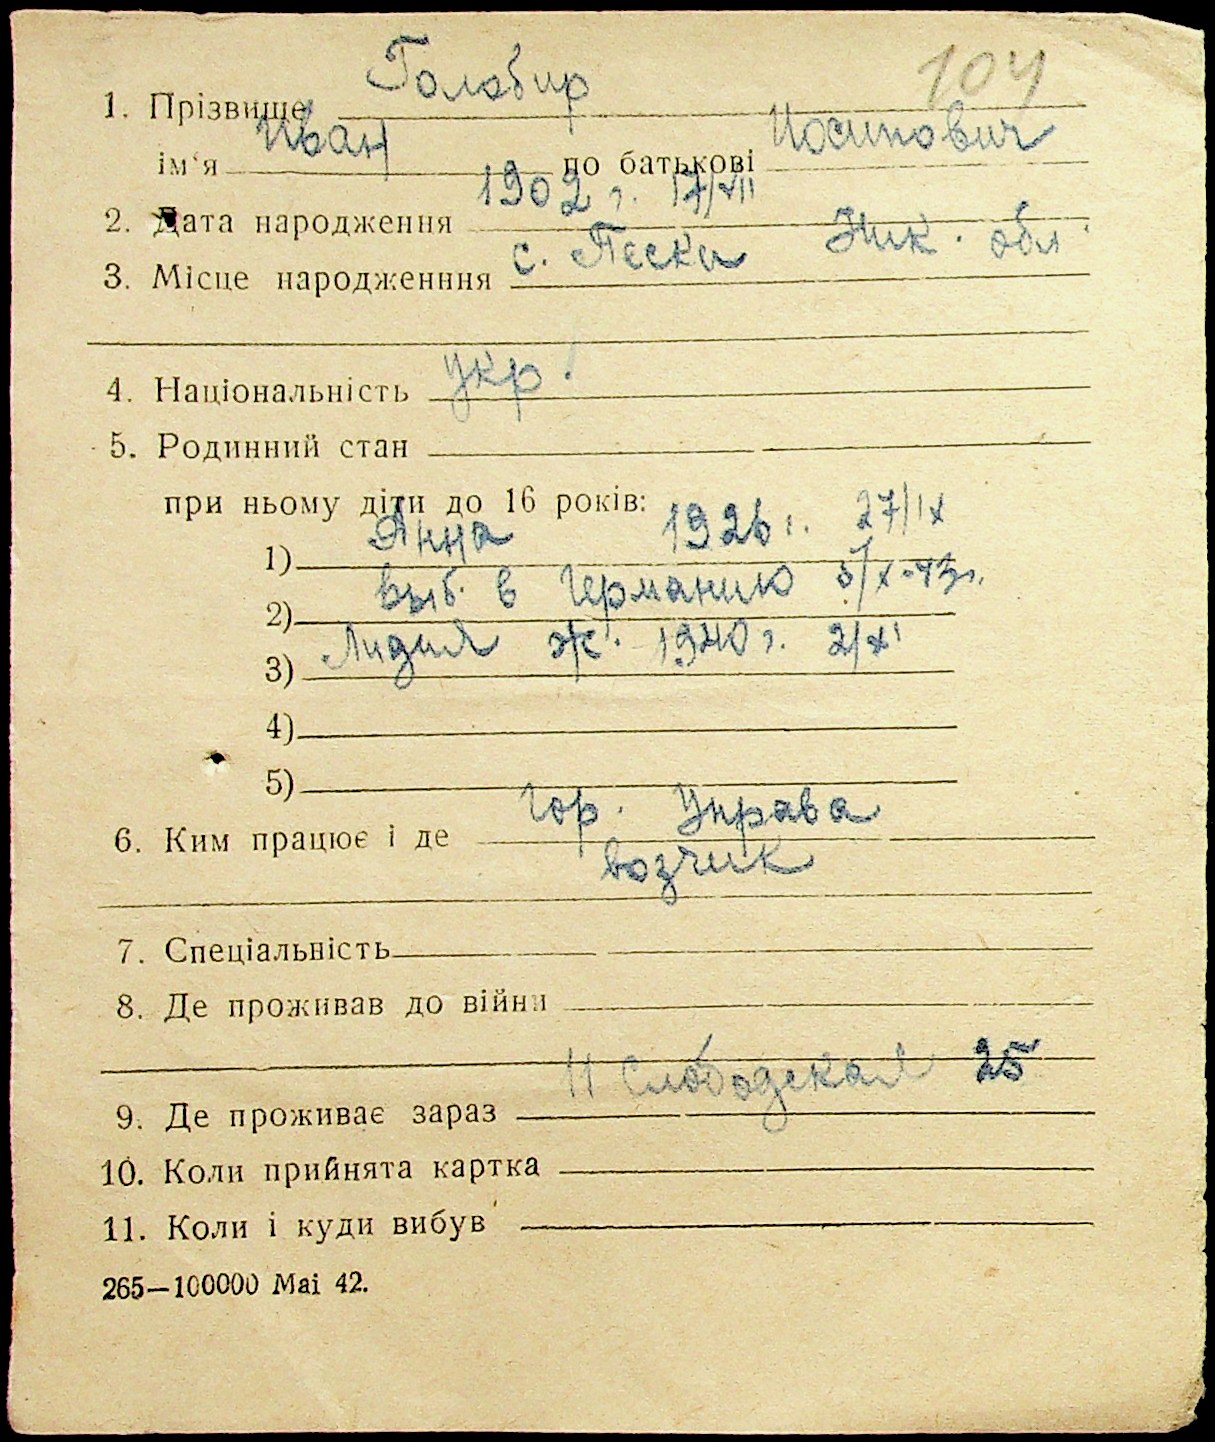 104
1. Прізвище Голобир
ім'я Иван по батькові Иосипович
2. Дата народження 1902 г. 17/VII
3. Місце народженння с. Пески Ник. обл.
4. Національність укр.
5. Родинний стан
при ньому діти до 16 років:
1) Анна 1926 г. 27/IX
2) выб. в Германию 5/X-43г.
3) Лидия ж. 1940 г. 2/XI
4)
5)
6. Ким працює і де Гор. Управа
возчик
7. Спеціальність
8. Де проживав до війни
9. Де проживає зараз 11 Слободская 25
10. Коли прийнята картка
11. Коли і куди вибув
265—100000 Mai 42.